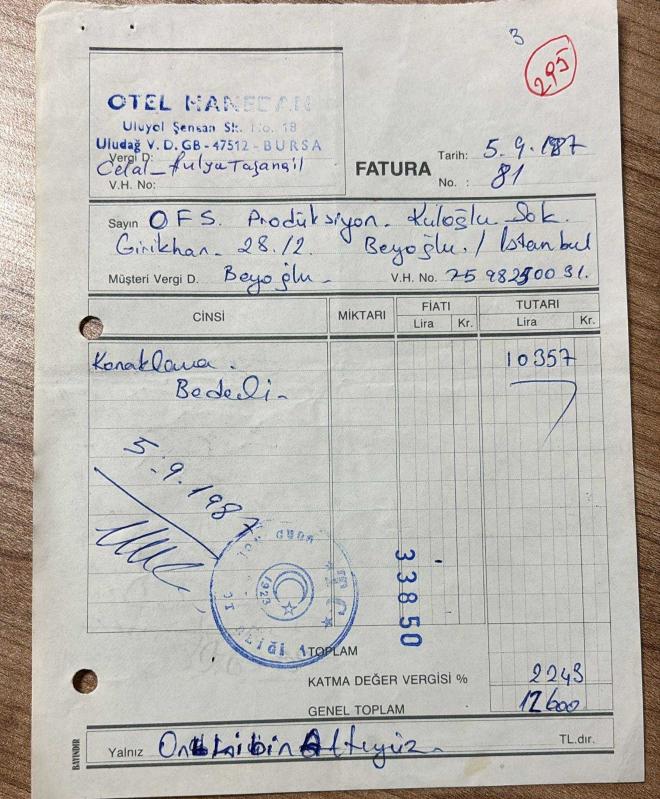 3
295
OTEL HANEDAN
Uluyol Şensan Sk. No. 18
Uludağ V. D. GB - 47512 - BURSA
Vergi D:
Celal - Fulya Taşangil
V.H. No:
FATURA
Tarih: 5.9.1987
No. : 81
Sayın OFS. Prodüksiyon. Kuloğlu Sok.
Girikhan - 28/2. Beyoğlu / İstanbul
Müşteri Vergi D. Beyoğlu - V.H. No.
CİNSİ MİKTARI FİATI TUTARI
Lira Kr. Lira Kr.
Konaklama. 10357
Bedeli -
5.9.1987
1923
33850
TOPLAM
KATMA DEĞER VERGİSİ % 2243
GENEL TOPLAM 12600
Yalnız Onikibin Altıyüz TL.dır.
BAYINDIR